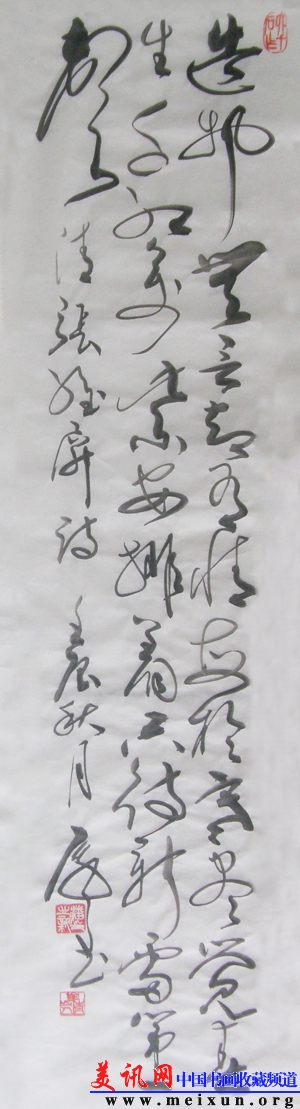 造物無言却有情每於寒盡覺春
生千紅萬紫安排着只待新雷第一
聲 清張維屏詩 壬辰秋月 书
美讯网 中国书画收藏频道
www.meixun.org